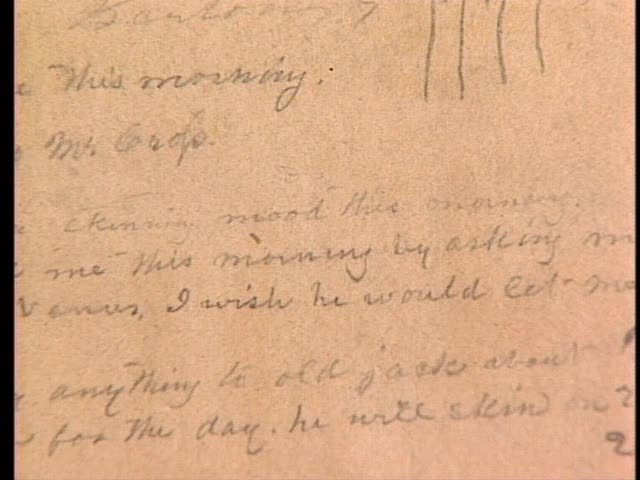 this morning.
Mr Crofs.
skinning mood this morning.
me this morning by asking m
I wish he would let me
anything to old jack about
for the day. he will skin on